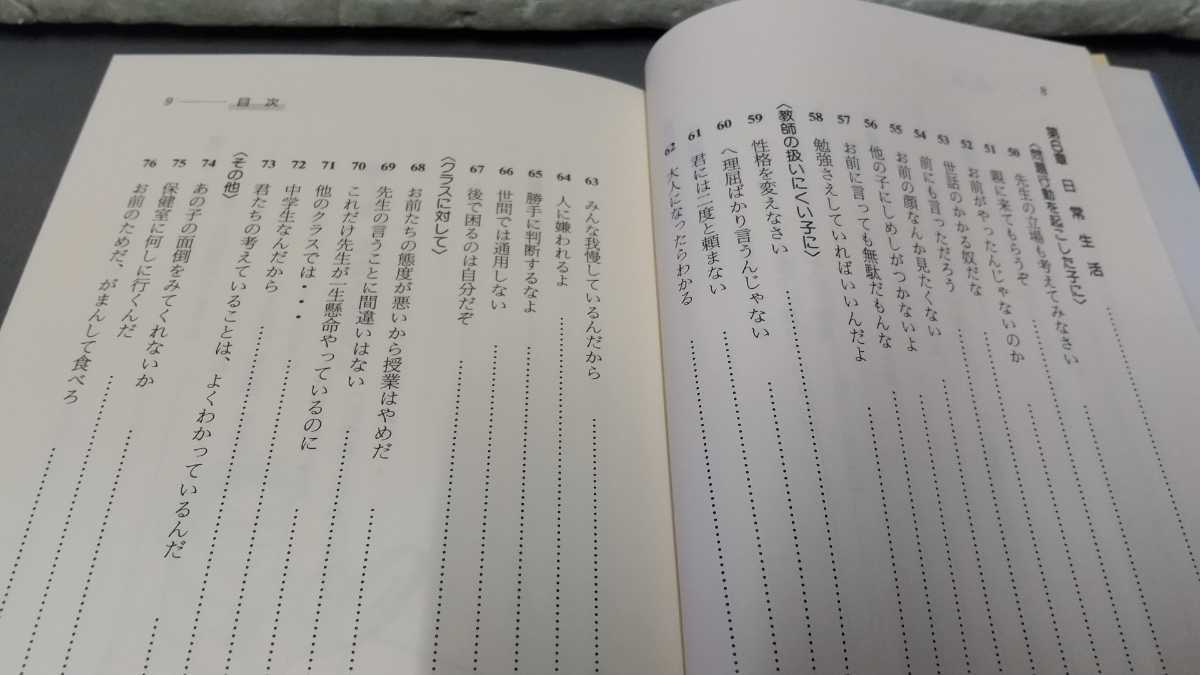 8
第6章 日常生活
〈問題行動を起こした子に〉
50 先生の立場も考えてみなさい
51 親に来てもらうぞ
52 お前がやったんじゃないのか
53 世話のかかる奴だな
54 前にも言っただろう
55 お前の顔なんか見たくない
56 他の子にしめしがつかないよ
57 お前に言っても無駄だもんな
58 勉強さえしていればいいんだよ
〈教師の扱いにくい子に〉
59 性格を変えなさい
60 へ理屈ばかり言うんじゃない
61 君には二度と頼まない
62 大人になったらわかる
9 目次
63 みんな我慢しているんだから
64 人に嫌われるよ
65 勝手に判断するなよ
66 世間では通用しない
67 後で困るのは自分だぞ
〈クラスに対して〉
68 お前たちの態度が悪いから授業はやめだ
69 先生の言うことに間違いはない
70 これだけ先生が一生懸命やっているのに
71 他のクラスでは・・・
72 中学生なんだから
73 君たちの考えていることは、よくわかっているんだ
〈その他〉
74 あの子の面倒をみてくれないか
75 保健室に何しに行くんだ
76 お前のためだ、がまんして食べろ